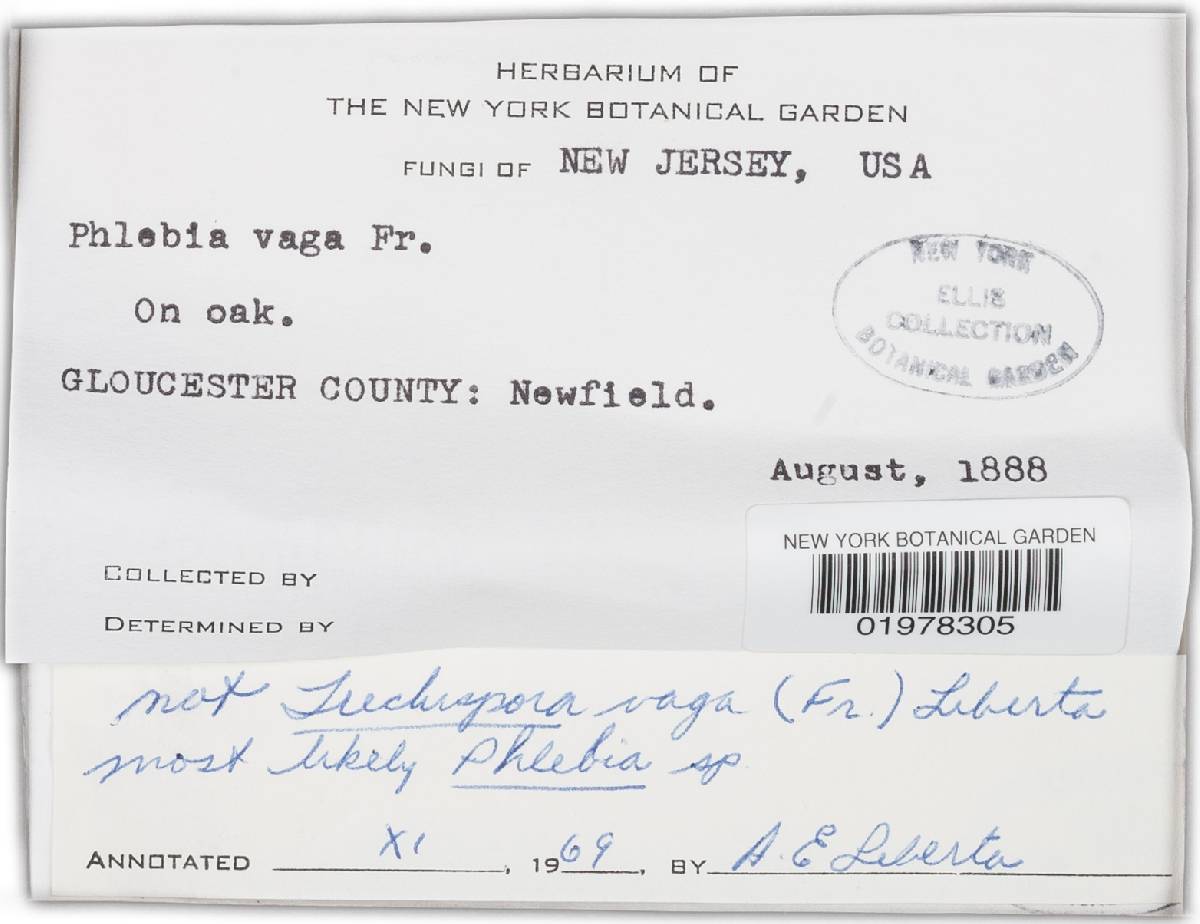 HERBARIUM OF
THE NEW YORK BOTANICAL GARDEN
FUNGI OF NEW JERSEY, USA
Phlebia vaga Fr.
On oak.
NEW YORK
ELLIS
COLLECTION
BOTANICAL GARDEN
GLOUCESTER COUNTY: Newfield.
August, 1888
NEW YORK BOTANICAL GARDEN
01978305
COLLECTED BY
DETERMINED BY
not Trechispora vaga (Fr.) Liberta
most likely Phlebia sp
ANNOTATED XI, 1969, BY A. E Liberta